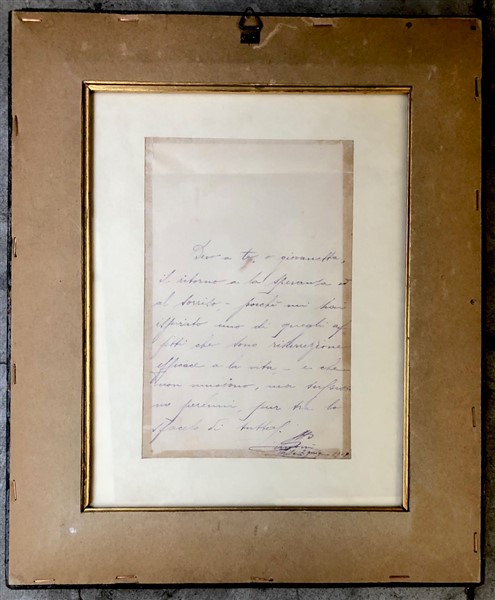 Devo a te, o giovanetta,
il ritorno a la speranza e
al sorriso - perchè mi hai
ispirato uno di quegli af-
fetti che sono risurrezione
efficace a la vita - e che
non muoiono, ma
no perenni, pur tra lo
sfacelo di tutto!